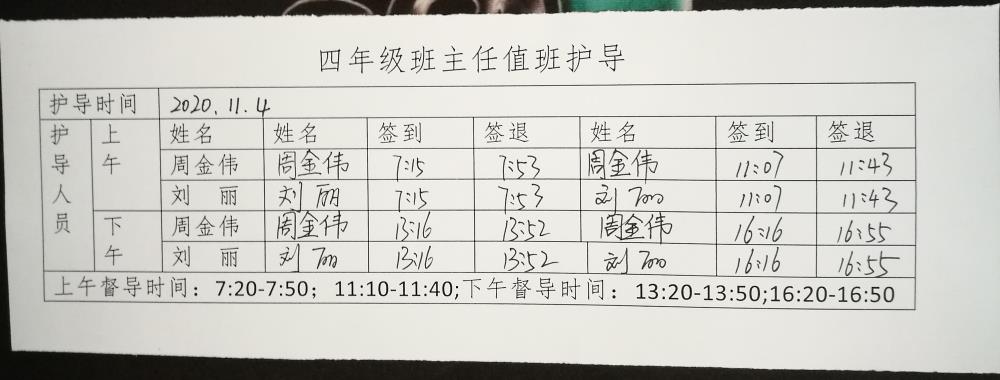 四年级班主任值班护导
护导时间 2020.11.4
护导人员 上午 姓名 姓名 签到 签退 姓名 签到 签退
周金伟 周金伟 7:15 7:53 周金伟 11:07 11:43
刘 丽 刘 丽 7:15 7:53 刘 丽 11:07 11:43
下午 周金伟 周金伟 13:16 13:52 周金伟 16:16 16:55
刘 丽 刘 丽 13:16 13:52 刘 丽 16:16 16:55
上午督导时间：7:20-7:50；11:10-11:40;下午督导时间：13:20-13:50;16:20-16:50